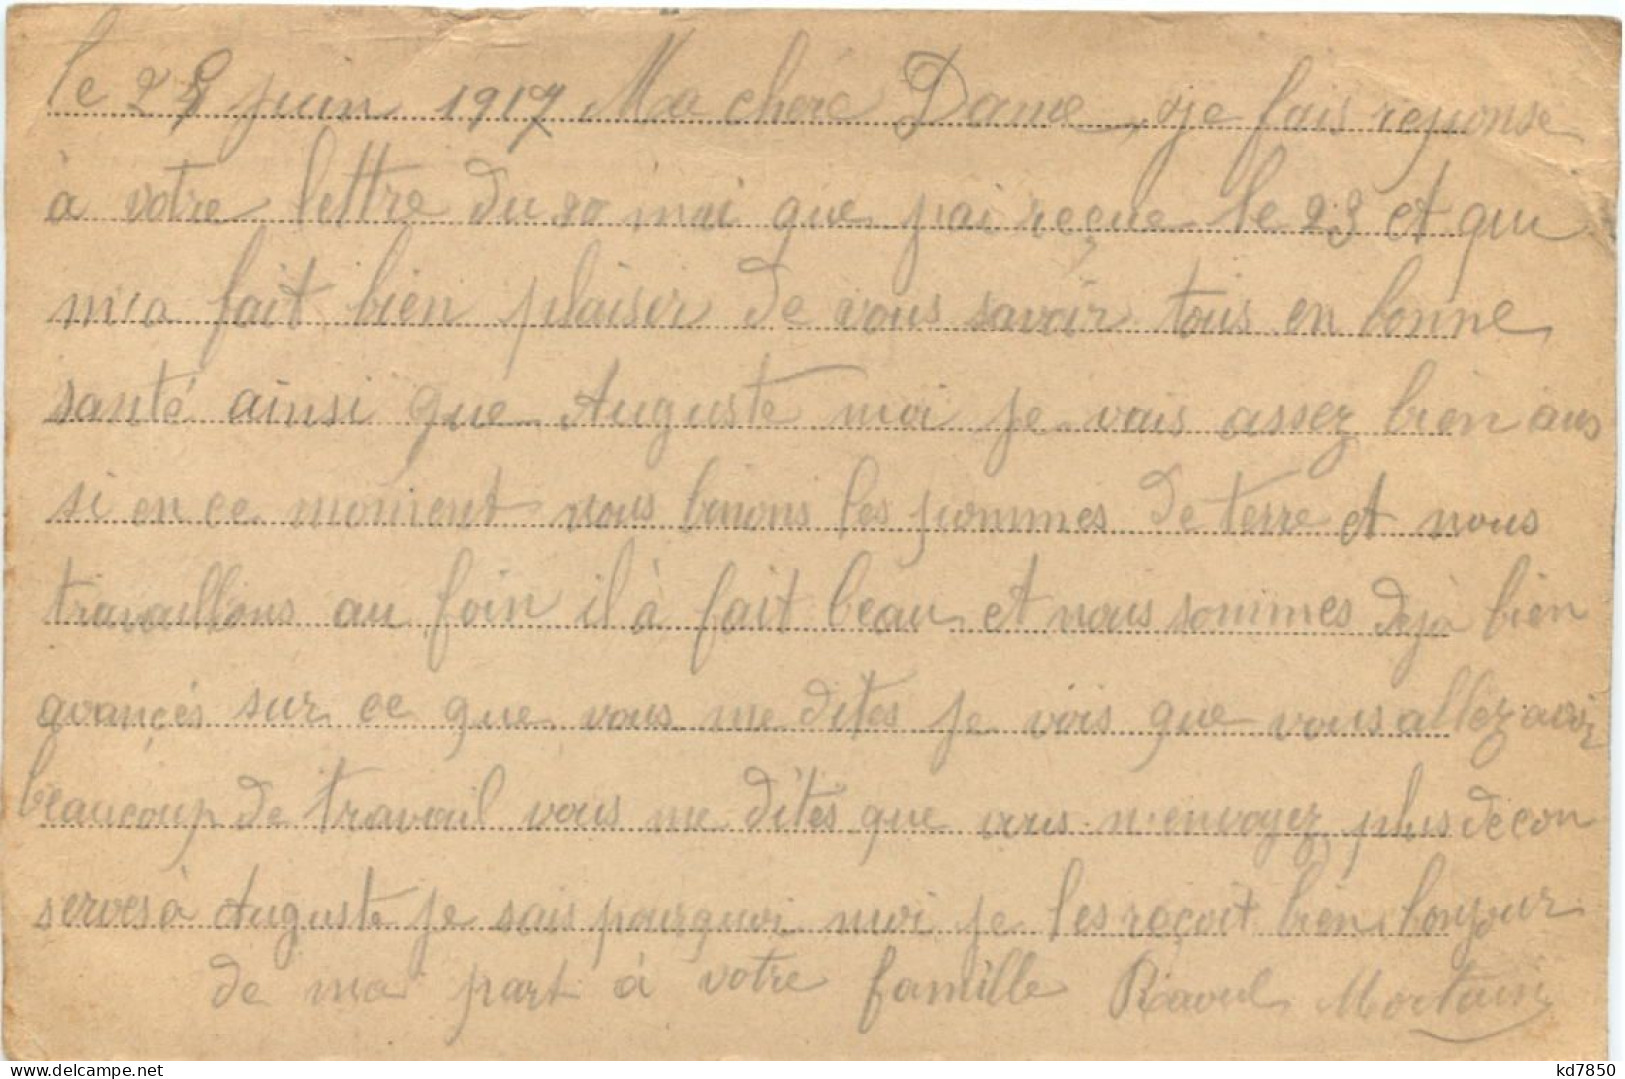 le 28 juin 1917 Ma chére Dame, je fais reponse
à votre lettre du 20 mai que j'ai reçue le 23 et qui
m'a fait bien plaisir de vous savoir tous en bonne
santé ainsi que Auguste moi je vais assez bien aus
si en ce moment nous binons les pommes de terre et nous
travaillons au foin il à fait beau et nous sommes dejà bien
avançés sur ce que vous me dites je vois que vous allez avoir
beaucoup de travail vous me dîtes que vous n'envoyez plus de con
serves à Auguste je sais pourquoi moi je les reçoit bien bonjour
de ma part à votre famille Raoul
kd7850